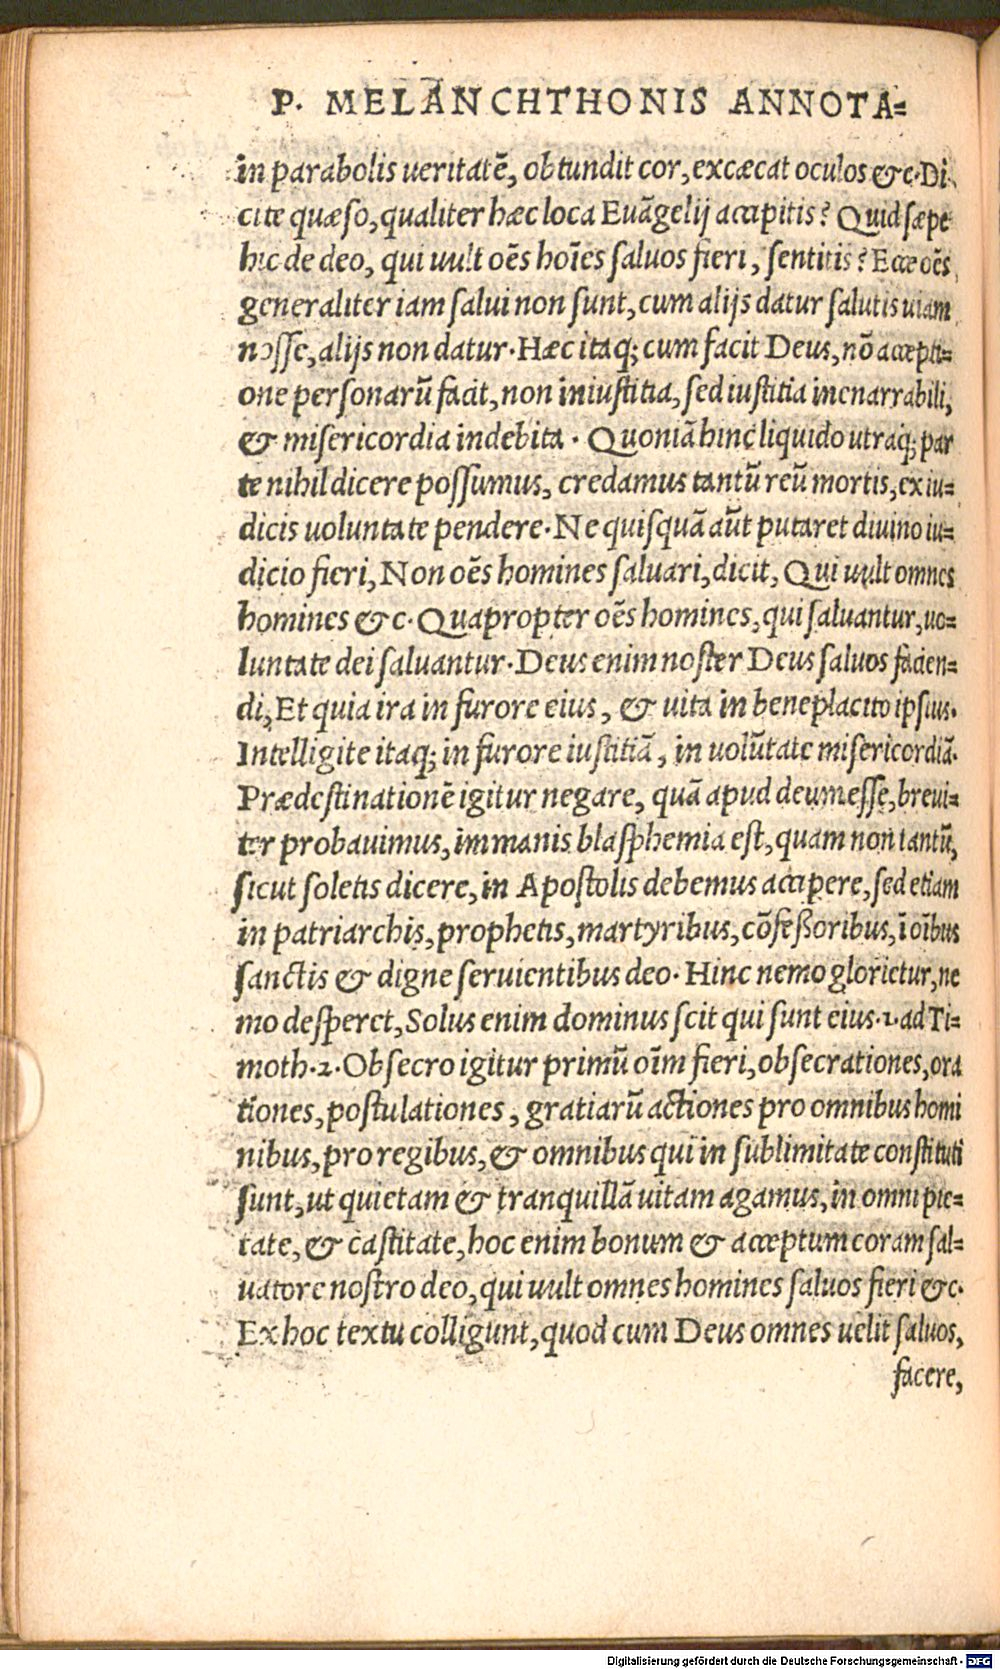 P. MELANCHTHONIS ANNOTA=
in parabolis ueritatē, obtundit cor, excæcat oculos &c. Di
cite quæso, qualiter hæc loca Euāgelij accipitis? Quid sæpe
hic de deo, qui uult oēs hoīes saluos fieri, sentitis? Ecce oēs
generaliter iam salui non sunt, cum alijs datur salutis uiam
nosse, alijs non datur. Hæc itaq; cum facit Deus, nō accepti=
one personarū facit, non iniustitia, sed iustitia inenarrabili,
& misericordia indebita. Quoniā hinc liquido utraq; par
te nihil dicere possumus, credamus tantū reū mortis, ex iu=
dicis uoluntate pendere. Ne quisquā aūt putaret diuino iu=
dicio fieri, Non oēs homines saluari, dicit, Qui uult omnes
homines &c. Quapropter oēs homines, qui saluantur, uo=
luntate dei saluantur. Deus enim noster Deus saluos facien=
di, Et quia ira in furore eius, & uita in beneplacito ipsius.
Intelligite itaq; in furore iustitiā, in uolūtate misericordiā.
Prædestinationē igitur negare, quā apud deum esse, breui=
ter probauimus, immanis blasphemia est, quam non tantū,
sicut soletis dicere, in Apostolis debemus accipere, sed etiam
in patriarchis, prophetis, martyribus, cōfeßoribus, ī oībus
sanctis & digne seruientibus deo. Hinc nemo glorietur, ne
mo desperet, Solus enim dominus scit qui sunt eius. 1. ad Ti=
moth. 2. Obsecro igitur primū oīm fieri, obsecrationes, ora
tiones, postulationes, gratiarū actiones pro omnibus homi
nibus, pro regibus, & omnibus qui in sublimitate constituti
sunt, ut quietam & tranquillā uitam agamus, in omni pie=
tate, & castitate, hoc enim bonum & acceptum coram sal=
uatore nostro deo, qui uult omnes homines saluos fieri &c.
Ex hoc textu colligunt, quod cum Deus omnes uelit saluos,
facere,
Digitalisierung gefördert durch die Deutsche Forschungsgemeinschaft - DFG